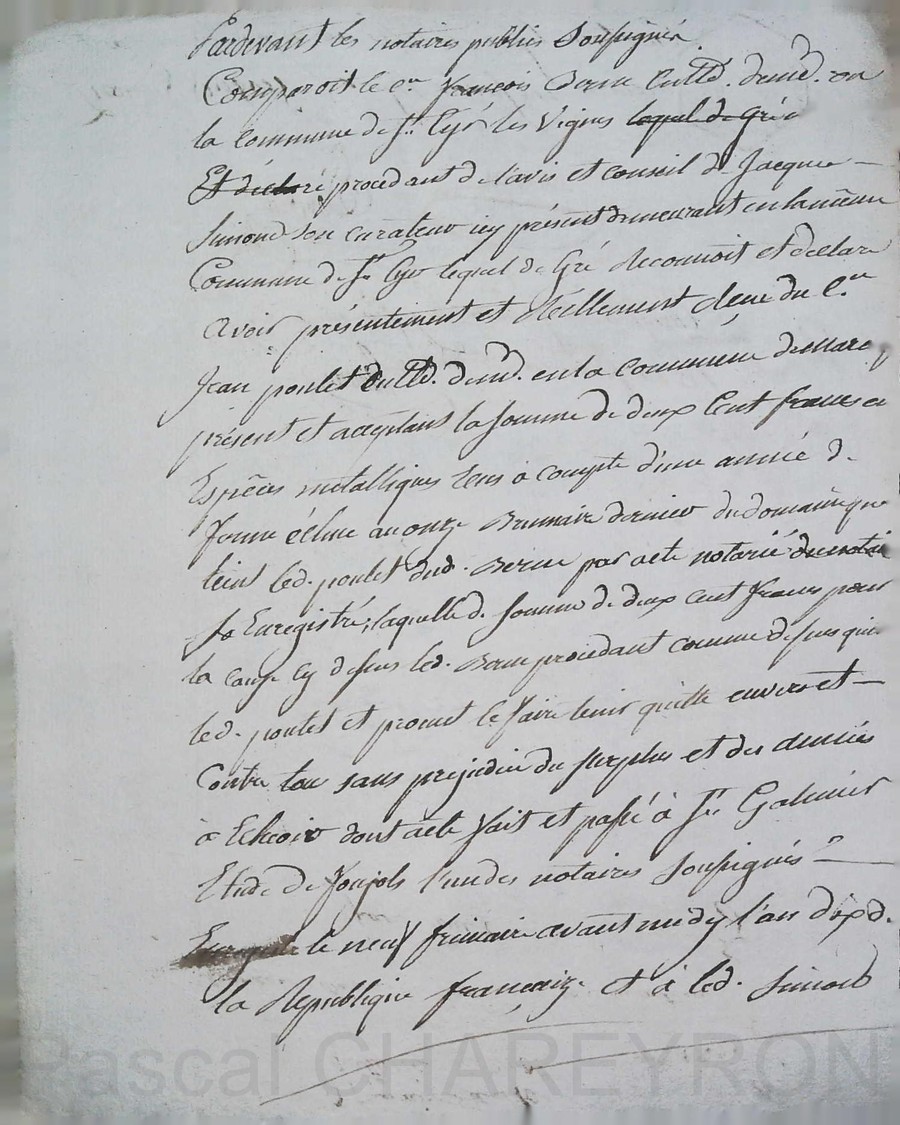 Pardevant les notaires publics Soussignés
Comparoit le c.en françois Berne Cultt.r demt. en
la commune de St. Cyr les Vignes lequel de Gré
Et déclaré procedant de l'avis et conseil de Jacques
Simond son curateur icy présent demeurant en la même
Commune de St. Cyr lequel de Gré Reconnoit et declare
avoir présentement et Réellement Receu du C.en
Jean poulet Cultt. demt. en la commune de
présent et acceptant la somme de deux Cent francs en
Espèces metalliques à compte d'une année de
ferme échue au onze Brumaire dernier du domaine que
tient led. poulet dud. Berne par acte notarié
Enregistré, laquelle d. somme de deux cent francs pour
la cause cy dessus led. Berne procedant comme dessus quitte
led. poulet et promet le faire tenir quitte envers et
Contre tous sans prejudice du surplus et des années
à Echeoir dont acte fait et passé à St. Galmier
Etude de Poujols l'un des notaires Soussignés
le neuf frimaire avant midy l'an dix d.
la Republique françoise et à led. Simond
Pascal CHAREYRON